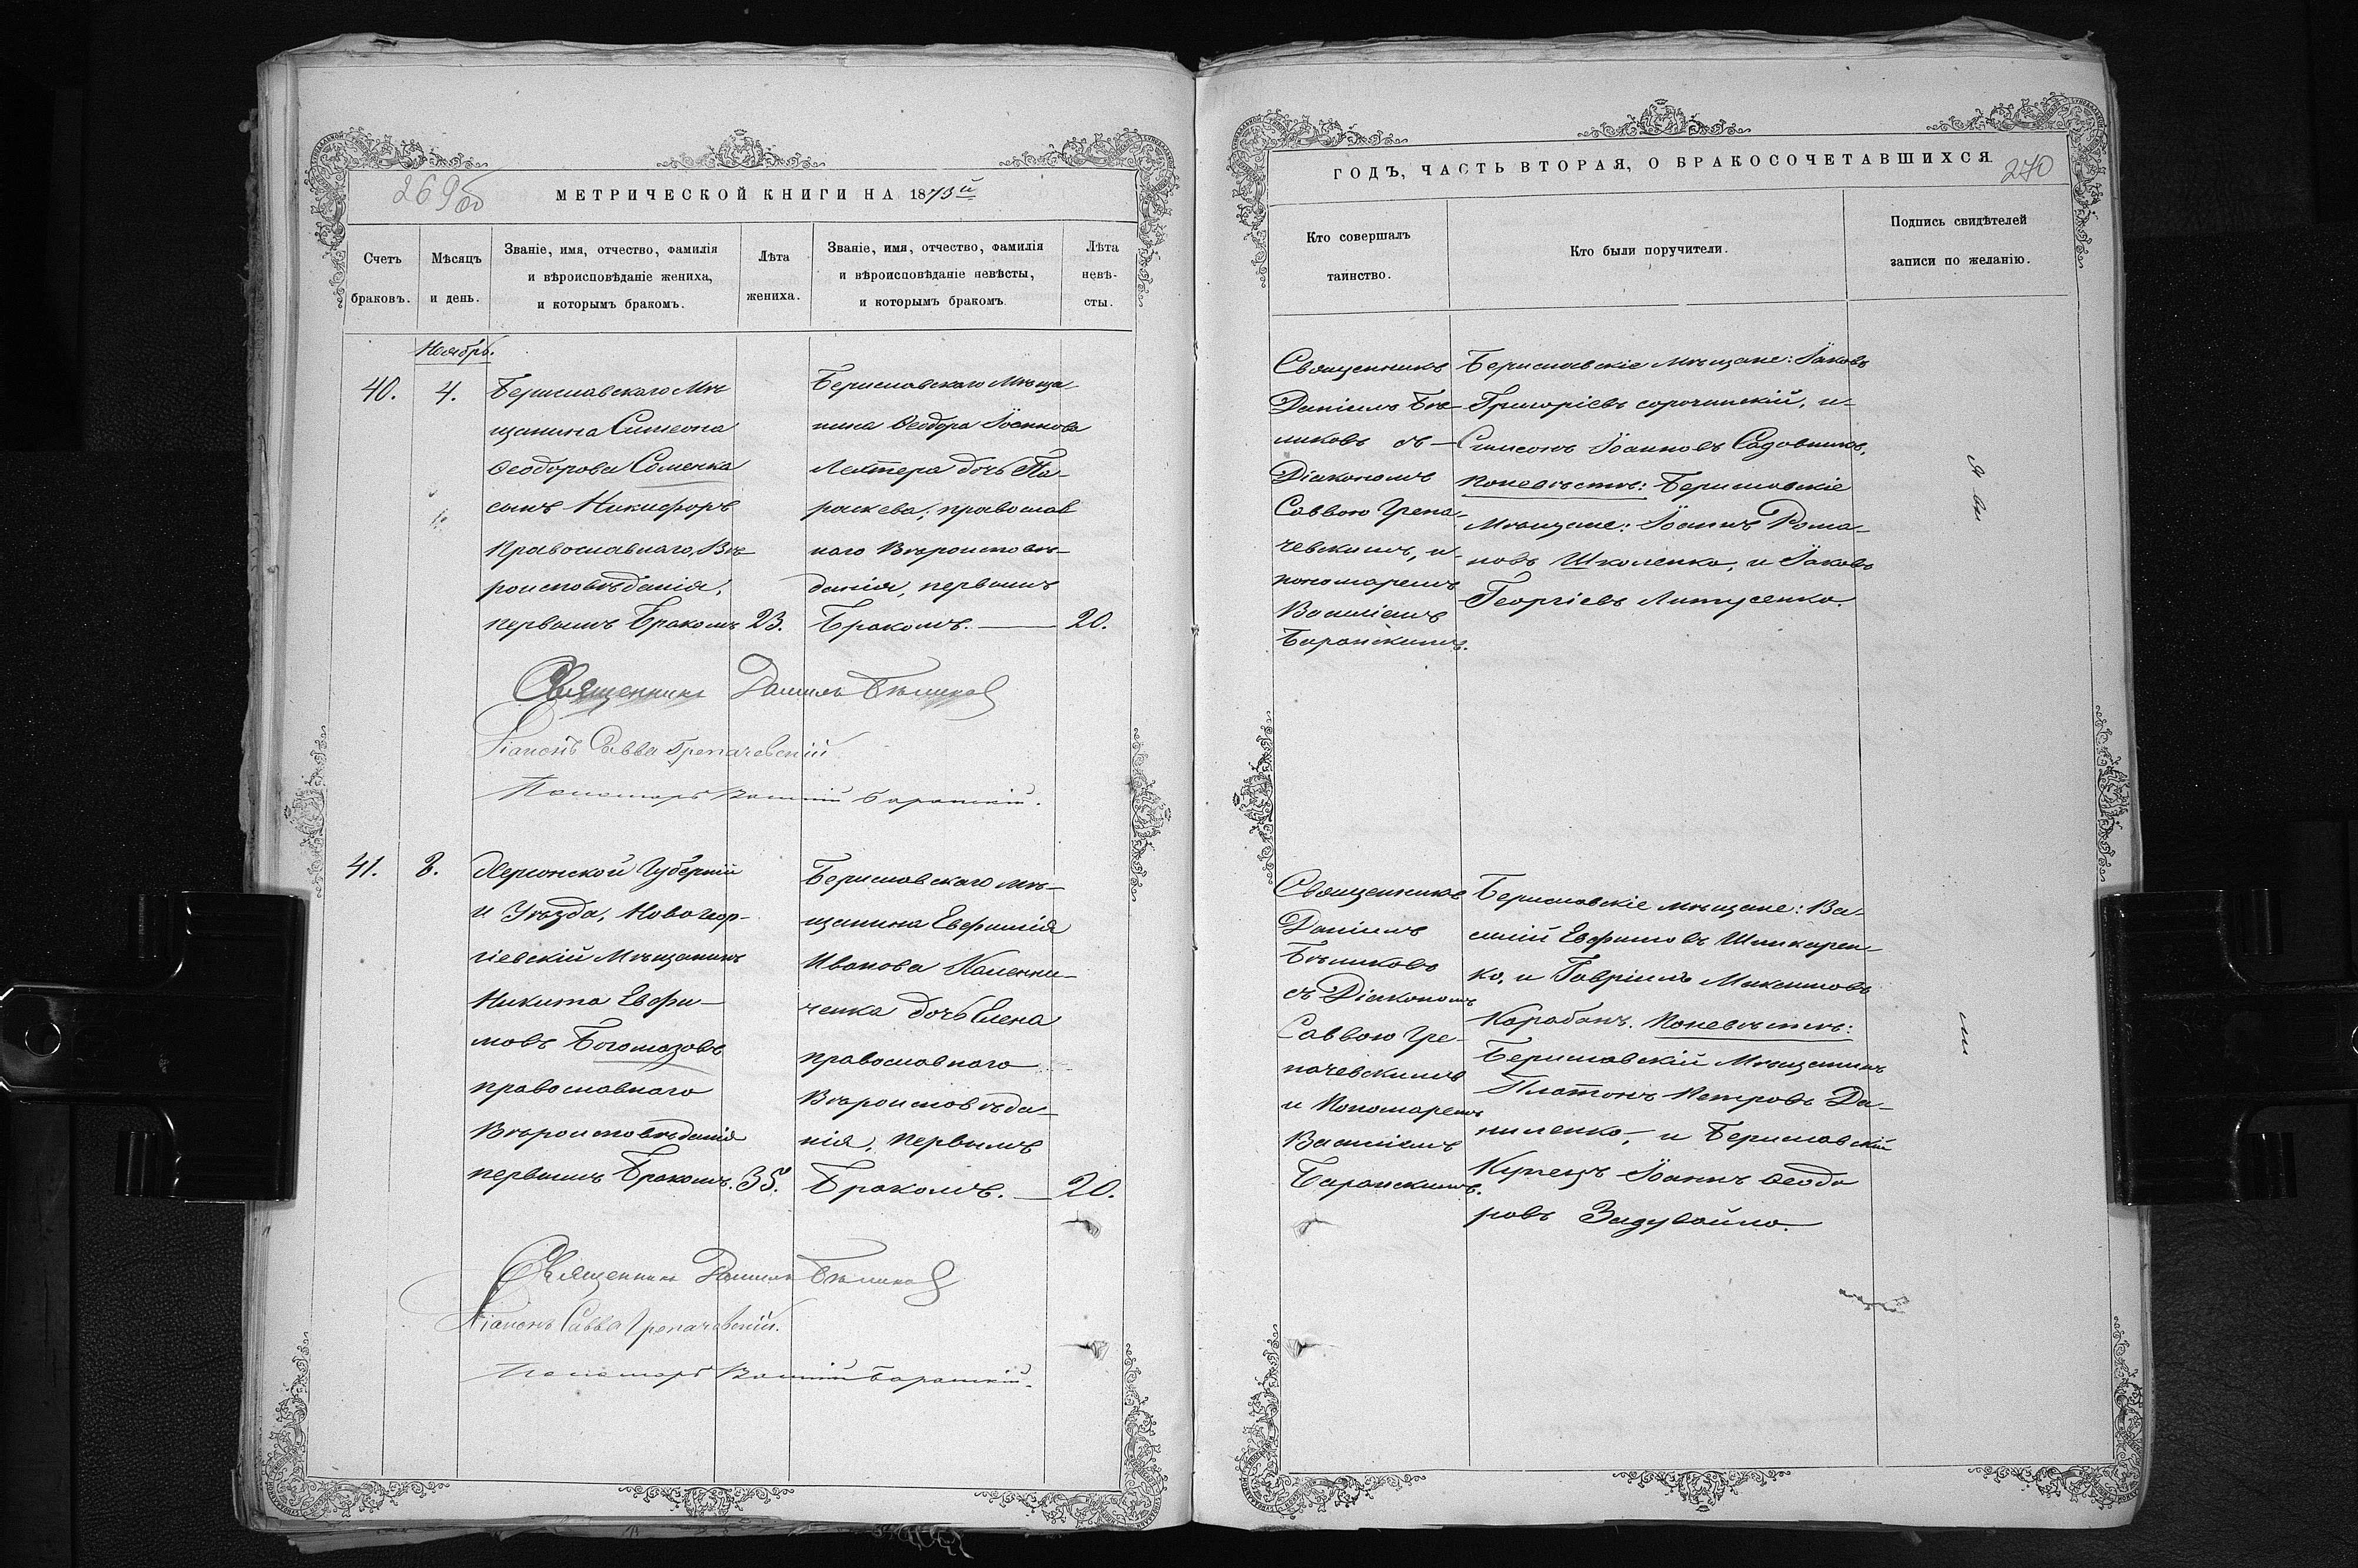 269 об
МЕТРИЧЕСКОЙ КНИГИ НА 1873й
Счетъ браковъ.
Мѣсяцъ и день.
Званіе, имя, отчество, фамилія
и вѣроисповѣданіе жениха,
и которымъ бракомъ.
Лѣта жениха.
Званіе, имя, отчество, фамилія
и вѣроисповѣданіе невѣсты,
и которымъ бракомъ.
Лѣта невѣ-
сты.
Ноябрь.
40.
4.
Бериславскаго Мѣ
щанина Симеона
Ѳеодорова Соменка
сынъ Никифоръ
Православнаго, Вѣ-
роисповѣданія,
первымъ Бракомъ
23.
Бериславскаго Мѣща-
нина Ѳеодора Іоаннова
Лехтера дочь Па-
раскева, православ
наго Вѣроисповѣ-
данія, первымъ
Бракомъ.
20.
Священникъ Даніилъ Бѣликов
Діаконъ Савва Грепачевскій
Пономарь Василій Баранскій.
41.
8.
Херсонской Губерніи
и Уѣзда, Новогеор-
гіевскій Мѣщанинъ
Никита Евфи-
мовъ Богомазовъ
православнаго
Вѣроисповѣданія
первымъ Бракомъ.
35.
Бериславскаго мѣ-
щанина Евфимія
Иванова Калинни-
ченка дочь Елена
православнаго
Вѣроисповѣда-
нія, первымъ
Бракомъ.
20.
Священникъ Даніилъ Бѣликов
Діаконъ Савва Грепачевскій.
Пономарь Василій Баранскій.
ГОДЪ, ЧАСТЬ ВТОРАЯ, О БРАКОСОЧЕТАВШИХСЯ.
270
Кто совершалъ
таинство.
Кто были поручители.
Подпись свидѣтелей
записи по желанію.
Священникъ
Даніилъ Бѣ-
ликовъ съ
Діакономъ
Саввою Грепа-
чевскимъ, и
пономаремъ
Василіемъ
Баранскимъ.
Бериславскіе мѣщане: Іаковъ
Григоріевъ сорочинскій, и
Симеонъ Іоанновъ Садовникъ,
Поневѣстѣ: Бериславскіе
Мѣщане: Іоаннъ Рома-
новъ Школенко, и Іаковъ
Георгіевъ Литусенко.
Священникъ
Даніилъ
Бѣликовъ
съ Діакономъ
Саввою Гре-
пачевскимъ
и Пономаремъ
Василіемъ
Баранскимъ.
Бериславскіе мѣщане: Ва-
силій Евфимовъ Шинкарен-
ко, и Гавріилъ Максимовъ
Карабанъ. Поневѣстѣ:
Бериславскій Мѣщанинъ
Платонъ Петровъ Да-
ниленко, и Бериславскій
Купецъ Іоаннъ Ѳеодо
ровъ Задувайло.